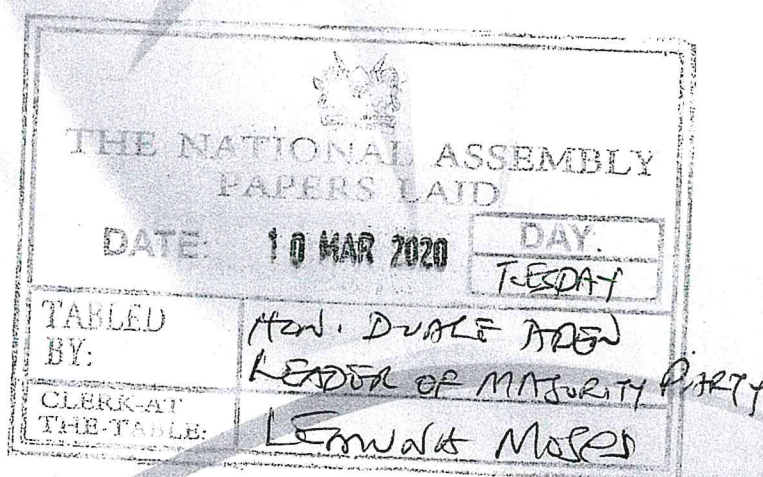 THE NATIONAL ASSEMBLY
PAPERS LAID
DATE: 10 MAR 2020 DAY:
TUESDAY
TABLED BY: HON. DUALE ADEN
LEADER OF MAJORITY PARTY
CLERK-AT THE-TABLE: MOSES